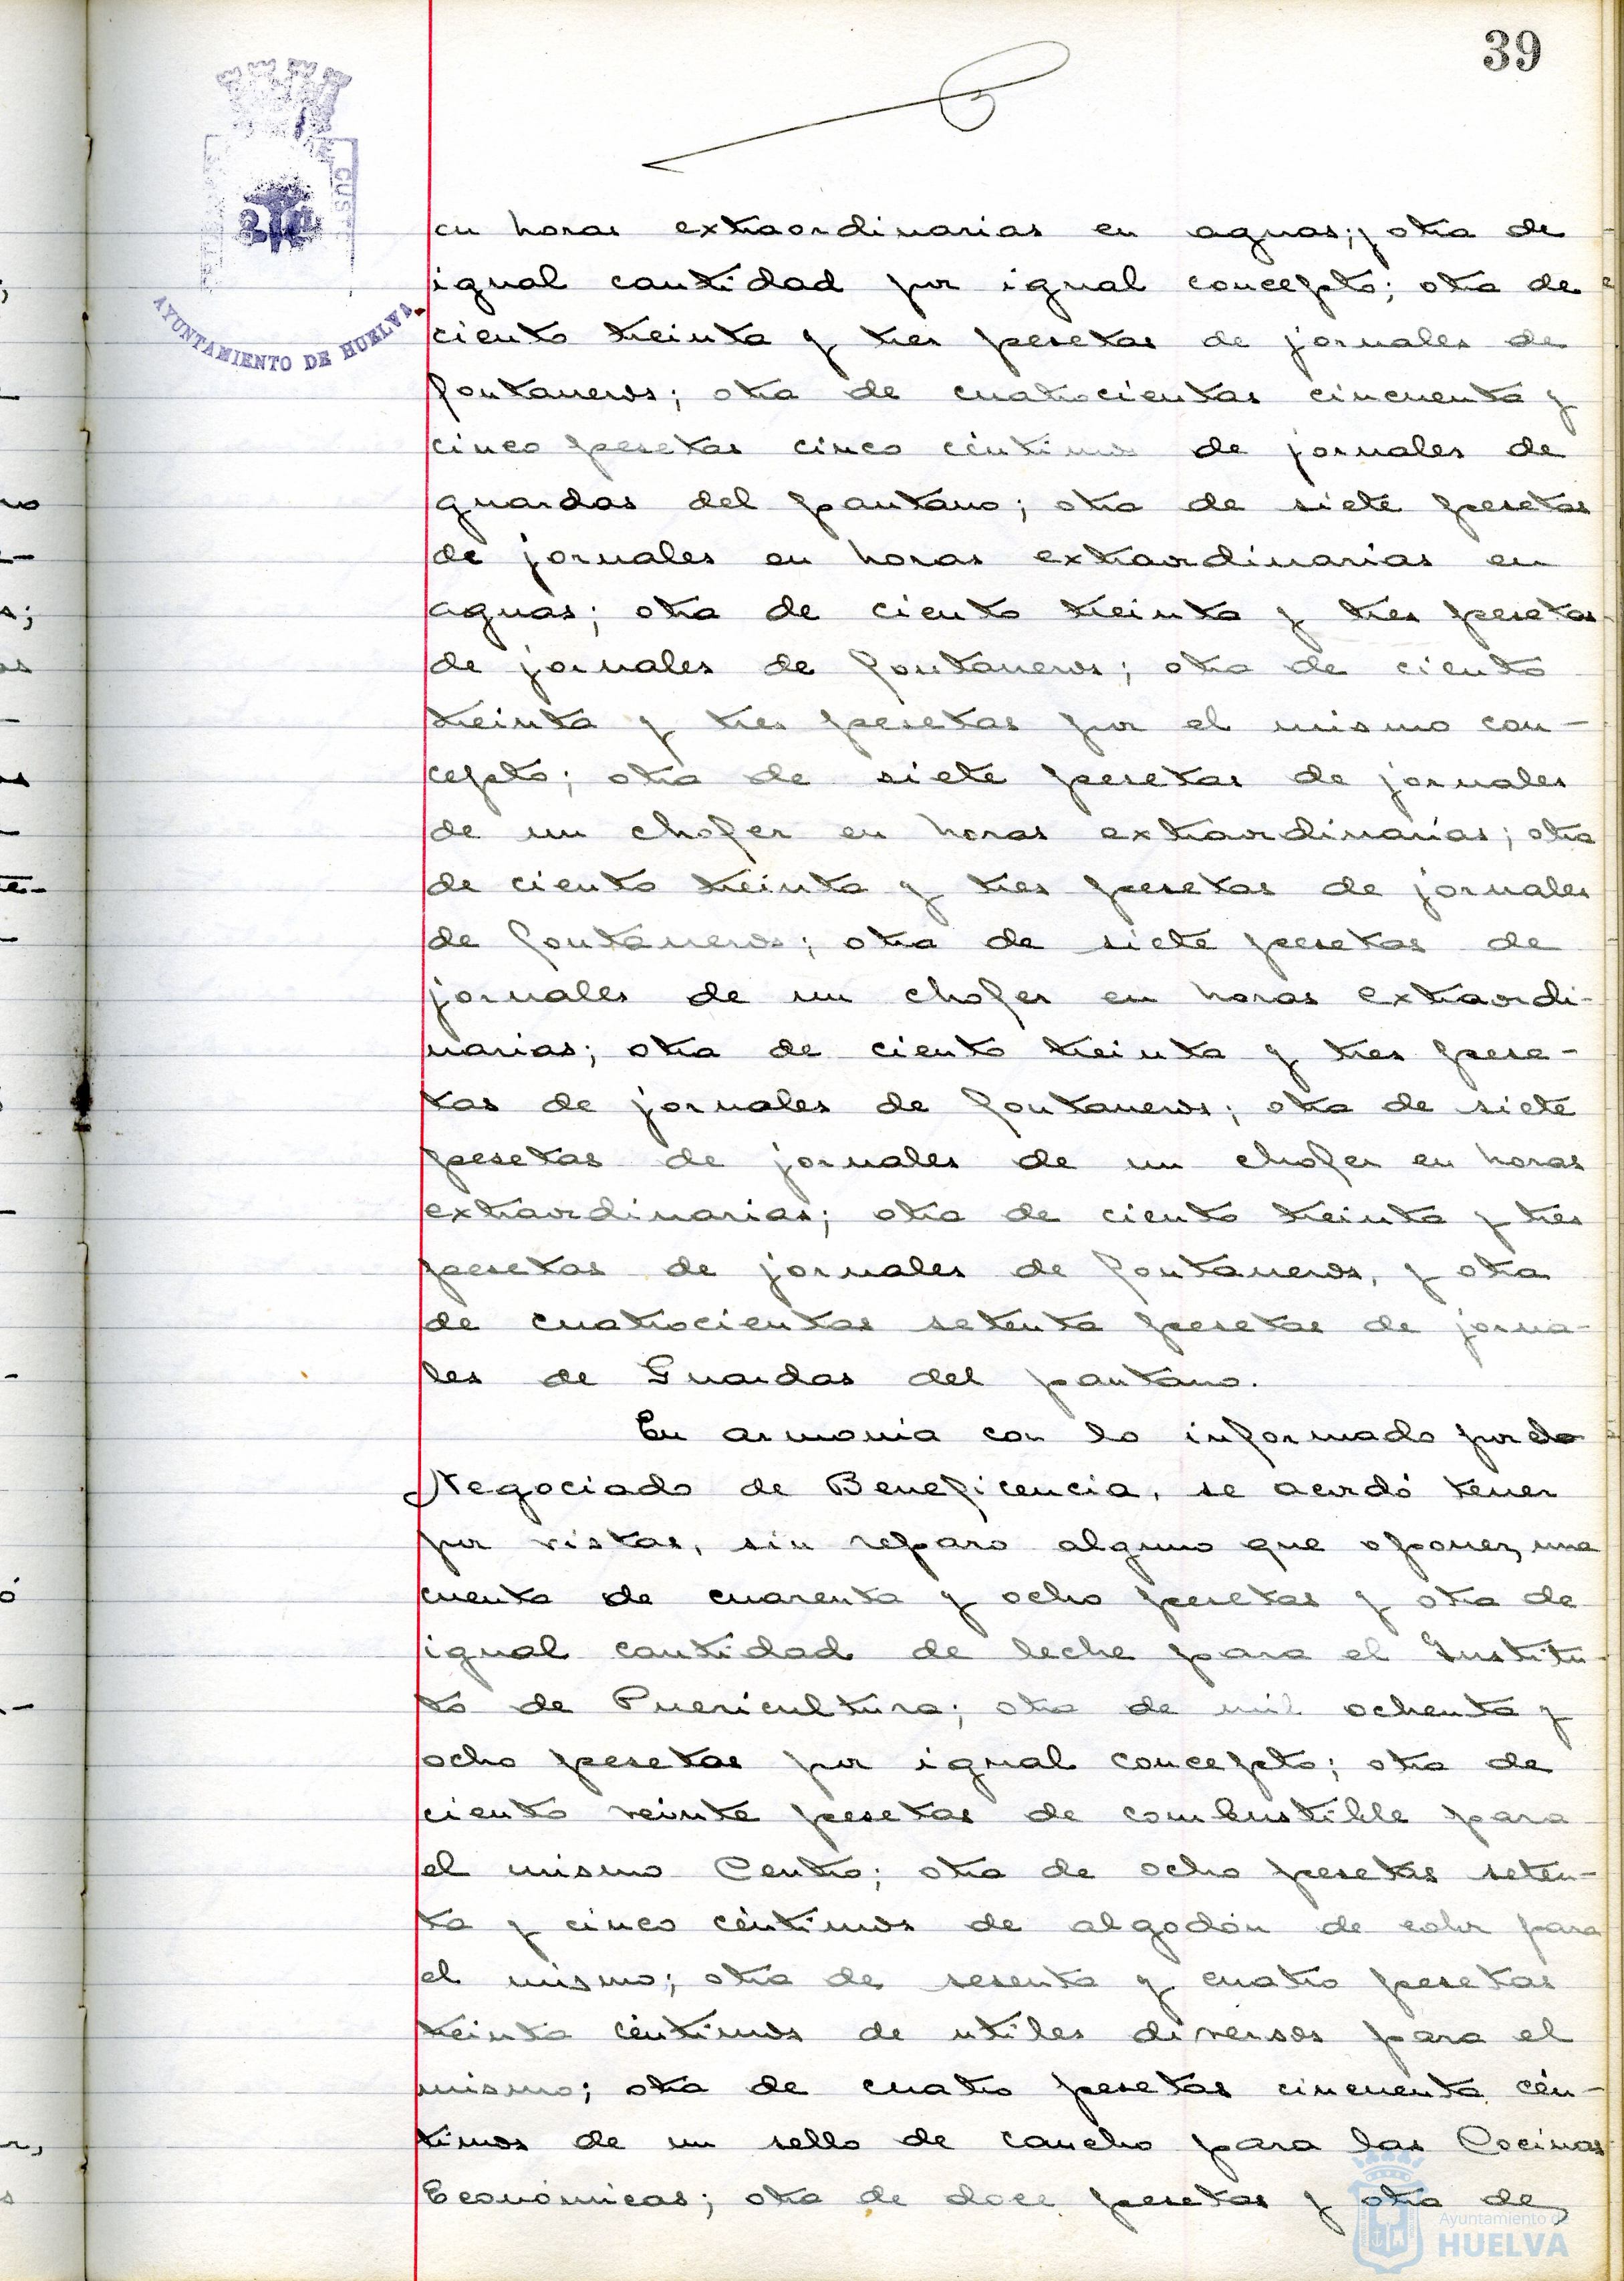 39
AYUNTAMIENTO DE HUELVA
en horas extraordinarias en aguas; y otra de
igual cantidad por igual concepto; otra de
ciento treinta y tres pesetas de jornales de
fontaneros; otra de cuatrocientas cincuenta y
cinco pesetas cinco céntimos de jornales de
guardas del pantano; otra de siete pesetas
de jornales en horas extraordinarias en
aguas; otra de ciento treinta y tres pesetas
de jornales de fontaneros; otra de ciento
treinta y tres pesetas por el mismo con-
cepto; otra de siete pesetas de jornales
de un chofer en horas extraordinarias; otra
de ciento treinta y tres pesetas de jornales
de fontaneros; otra de siete pesetas de
jornales de un chofer en horas extraordi-
narias; otra de ciento treinta y tres pese-
tas de jornales de fontaneros; otra de siete
pesetas de jornales de un chofer en horas
extraordinarias; otra de ciento treinta y tres
pesetas de jornales de fontaneros, y otra
de cuatrocientas setenta pesetas de jorna-
les de Guardas del pantano.
En armonia con lo informado por
Negociado de Beneficencia, se acordó tener
por vistas, sin reparo alguno que oponer, una
cuenta de cuarenta y ocho pesetas y otra de
igual cantidad de leche para el Institu-
to de Puericultura; otra de mil ochenta y
ocho pesetas por igual concepto; otra de
ciento veinte pesetas de combustible para
el mismo Centro; otra de ocho pesetas seten-
ta y cinco céntimos de algodón de color para
el mismo; otra de sesenta y cuatro pesetas
treinta céntimos de utiles diversos para el
mismo; otra de cuatro pesetas cincuenta cén-
timos de un sello de caucho para las Cocinas
Económicas; otra de doce pesetas y otra de
Ayuntamiento de
HUELVA